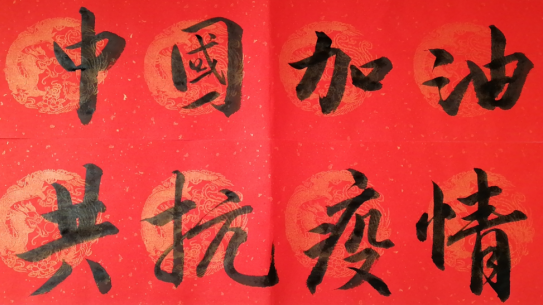 中國加油
共抗疫情